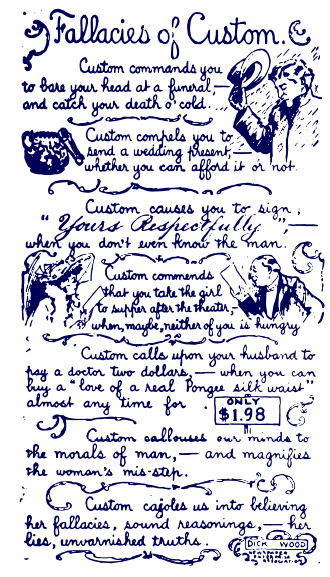 Fallacies of Custom.
Custom commands you
to bare your head at a funeral,—
and catch your death o' cold.
Custom compels you to
send a wedding present,—
whether you can afford it or not.
Custom causes you to sign,
"Yours Respectfully",—
when you don't even know the man.
Custom commends
that you take the girl
to supper after the theater,—
when, maybe, neither of you is hungry.
Custom calls upon your husband to
pay a doctor two dollars,— when you can
buy a "love of a real Pongee silk waist"
almost any time for
ONLY
$1.98
Custom callouses our minds to
the morals of man,— and magnifies
the woman's mis-step.
Custom cajoles us into believing
her fallacies, sound reasonings,— her
lies, unvarnished truths.
DICK WOOD
NEWSPAPER
ENTERPRISE
ASSOCIATION